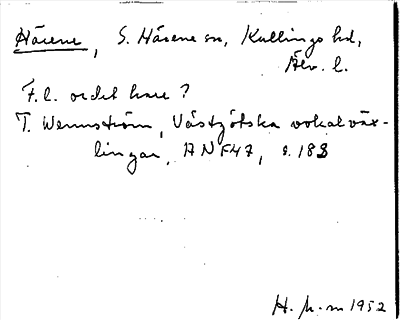 Härene, S. Härene sn, Kullings hd,
Älv. l.
F.l. ordet hare ?
T. Wennström, Västgötska vokalväx-
lingar, ANF 47, s. 183
H. 1952